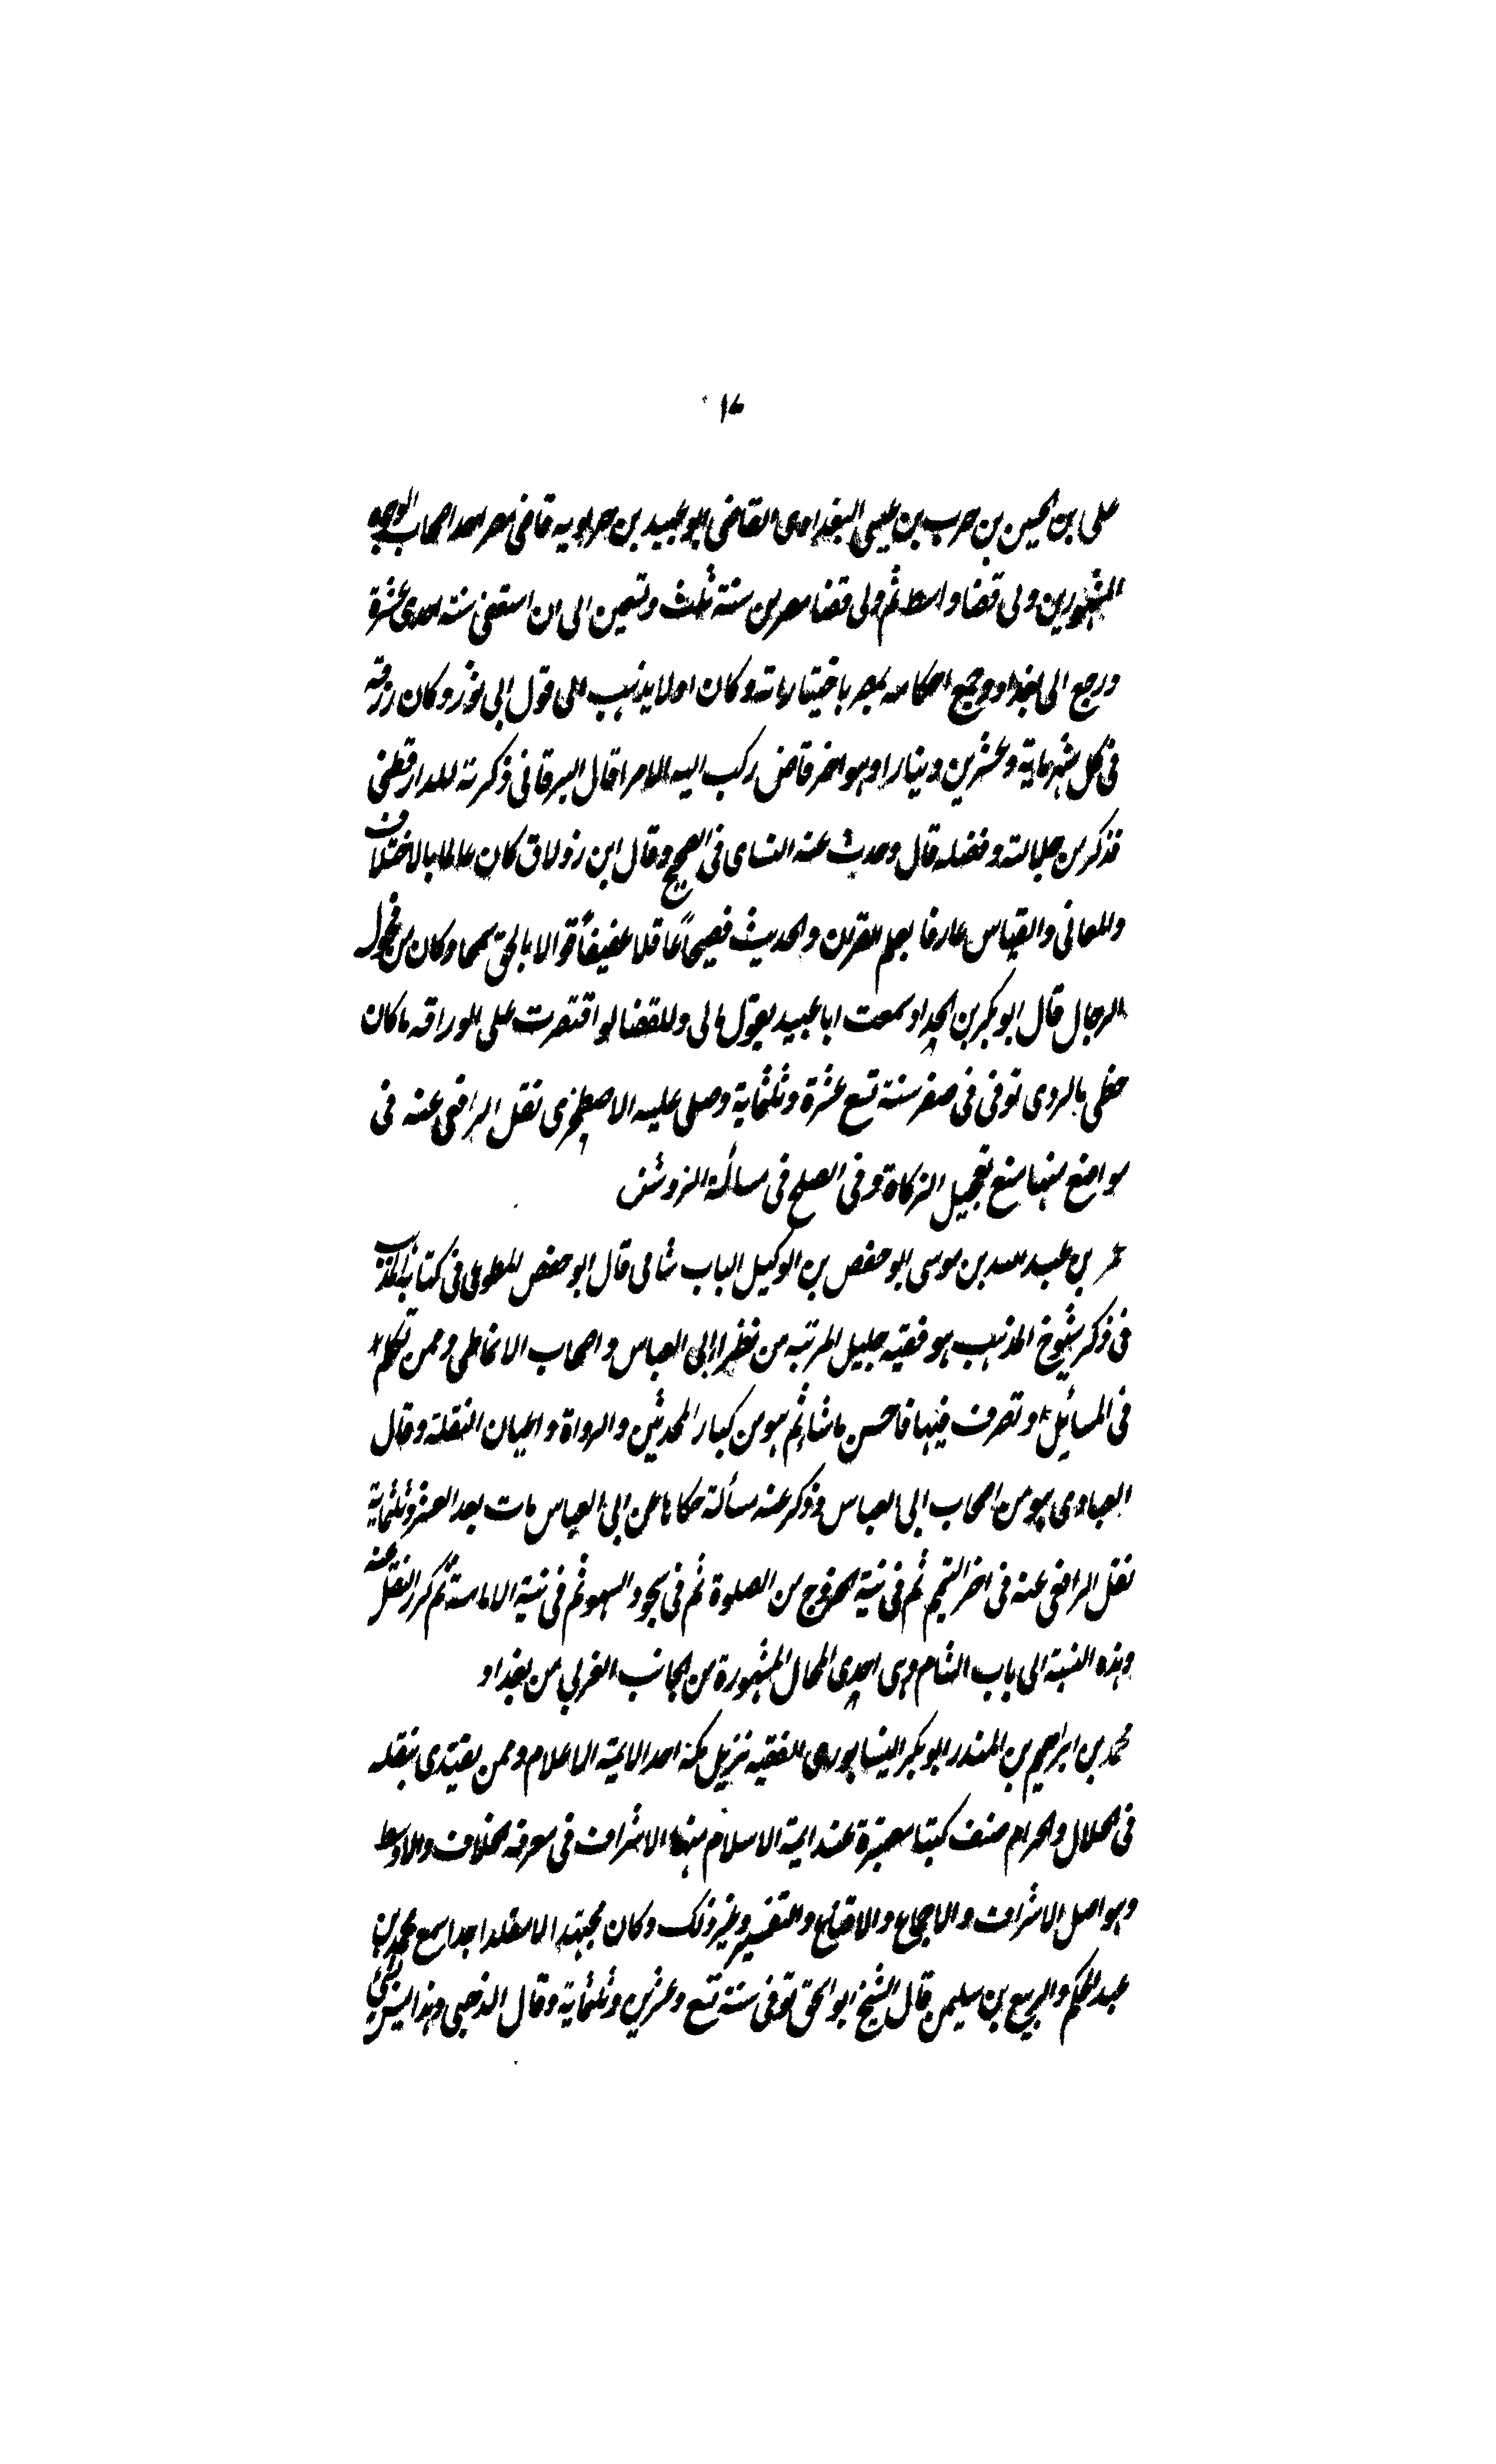 ١٧
على بن الحسين بن حرب بن عيسى البغدادى القاضى ابو عبيد بن حربويه قاضى مصر احد اصحاب الوجوه
المشهورين ولى قضا واسط ثم ولى قضا مصر من سنة ثلث وتسعين الى ان استعفى سنة احدى عشرة
ورجع الى بغداد وجميع احكامه بمصر باختياراته وكان اولا يذهب الى قول ابى ثور وكان رزقه
فى كل شهر ماية وعشرين دينارا وهو اخر قاض ركب اليه الامرا قال البرقانى ذكرته للدارقطنى
فذكر من جلالته وفضله قال وحدث عنه النساى فى الصحيح وقال ابن زولاق كان عالما بالاختلاف
والمعانى والقياس عارفا بعلم القران والحديث فصيحاً عاقلا عفيفاً قوالا بالحق سمحا وكان من فحول
الرجال قال ابو بكر بن الحداد سمعت ابا عبيد يقول مالى وللقضا لو اقتصرت على الوراقه ماكان
خطى بالردى توفى فى صفر سنة تسع عشرة وثلثماية وصلى عليه الاصطخرى نقل الرافعى عنه فى
مواضع منها منع تعجيل الزكاة وفى الصلح فى مسألة الروشن
عمر بن عبد الله بن موسى ابو حفص بن الوكيل الباب شامى قال ابو حفص المطوعى فى كتابه المذهب
فى ذكر شيوخ المذهب هو فقيه جليل المرتبه من نظرا ابى العباس واصحاب الانماطى وممن تكلم
فى المسائل وتصرف فيها فاحسن ماشا ثم هو من كبار المحدثين والرواة واعيان النقلة وقال
العبادى هو من اصحاب ابى العباس وذكر عنه مسألة حكاها عن ابى العباس مات بعد العشر وثلثماية
نقل الرافعى عنه فى اخر التيمم ثم فى نية الخروج من الصلوة ثم فى سجود السهو ثم فى نية الامامة ثم كرر النقل عنه
وهذه النسبة الى باب الشام وهى احدى المحال المشهورة من الجانب الغربى من بغداد
محمد بن ابراهيم بن المنذر ابو بكر النيسابورى الفقيه نزيل مكة احد الايمة الاعلام وممن يقتدى بنقله
فى الحلال والحرام صنف كتبا معتبرة عند ايمة الاسلام منها الاشراف فى معرفة الخلاف والاوسط
وهو اصل الاشراف والاجماع والاقناع والتفسير وغير ذلك وكان مجتهدا لا مقلدا احدا سمع محمد بن
عبد الحكم والربيع بن سليمن قال الشيخ ابو اسحق توفى سنة تسع وعشرين وثلثماية وقال الذهبى وهذا ليس بشى